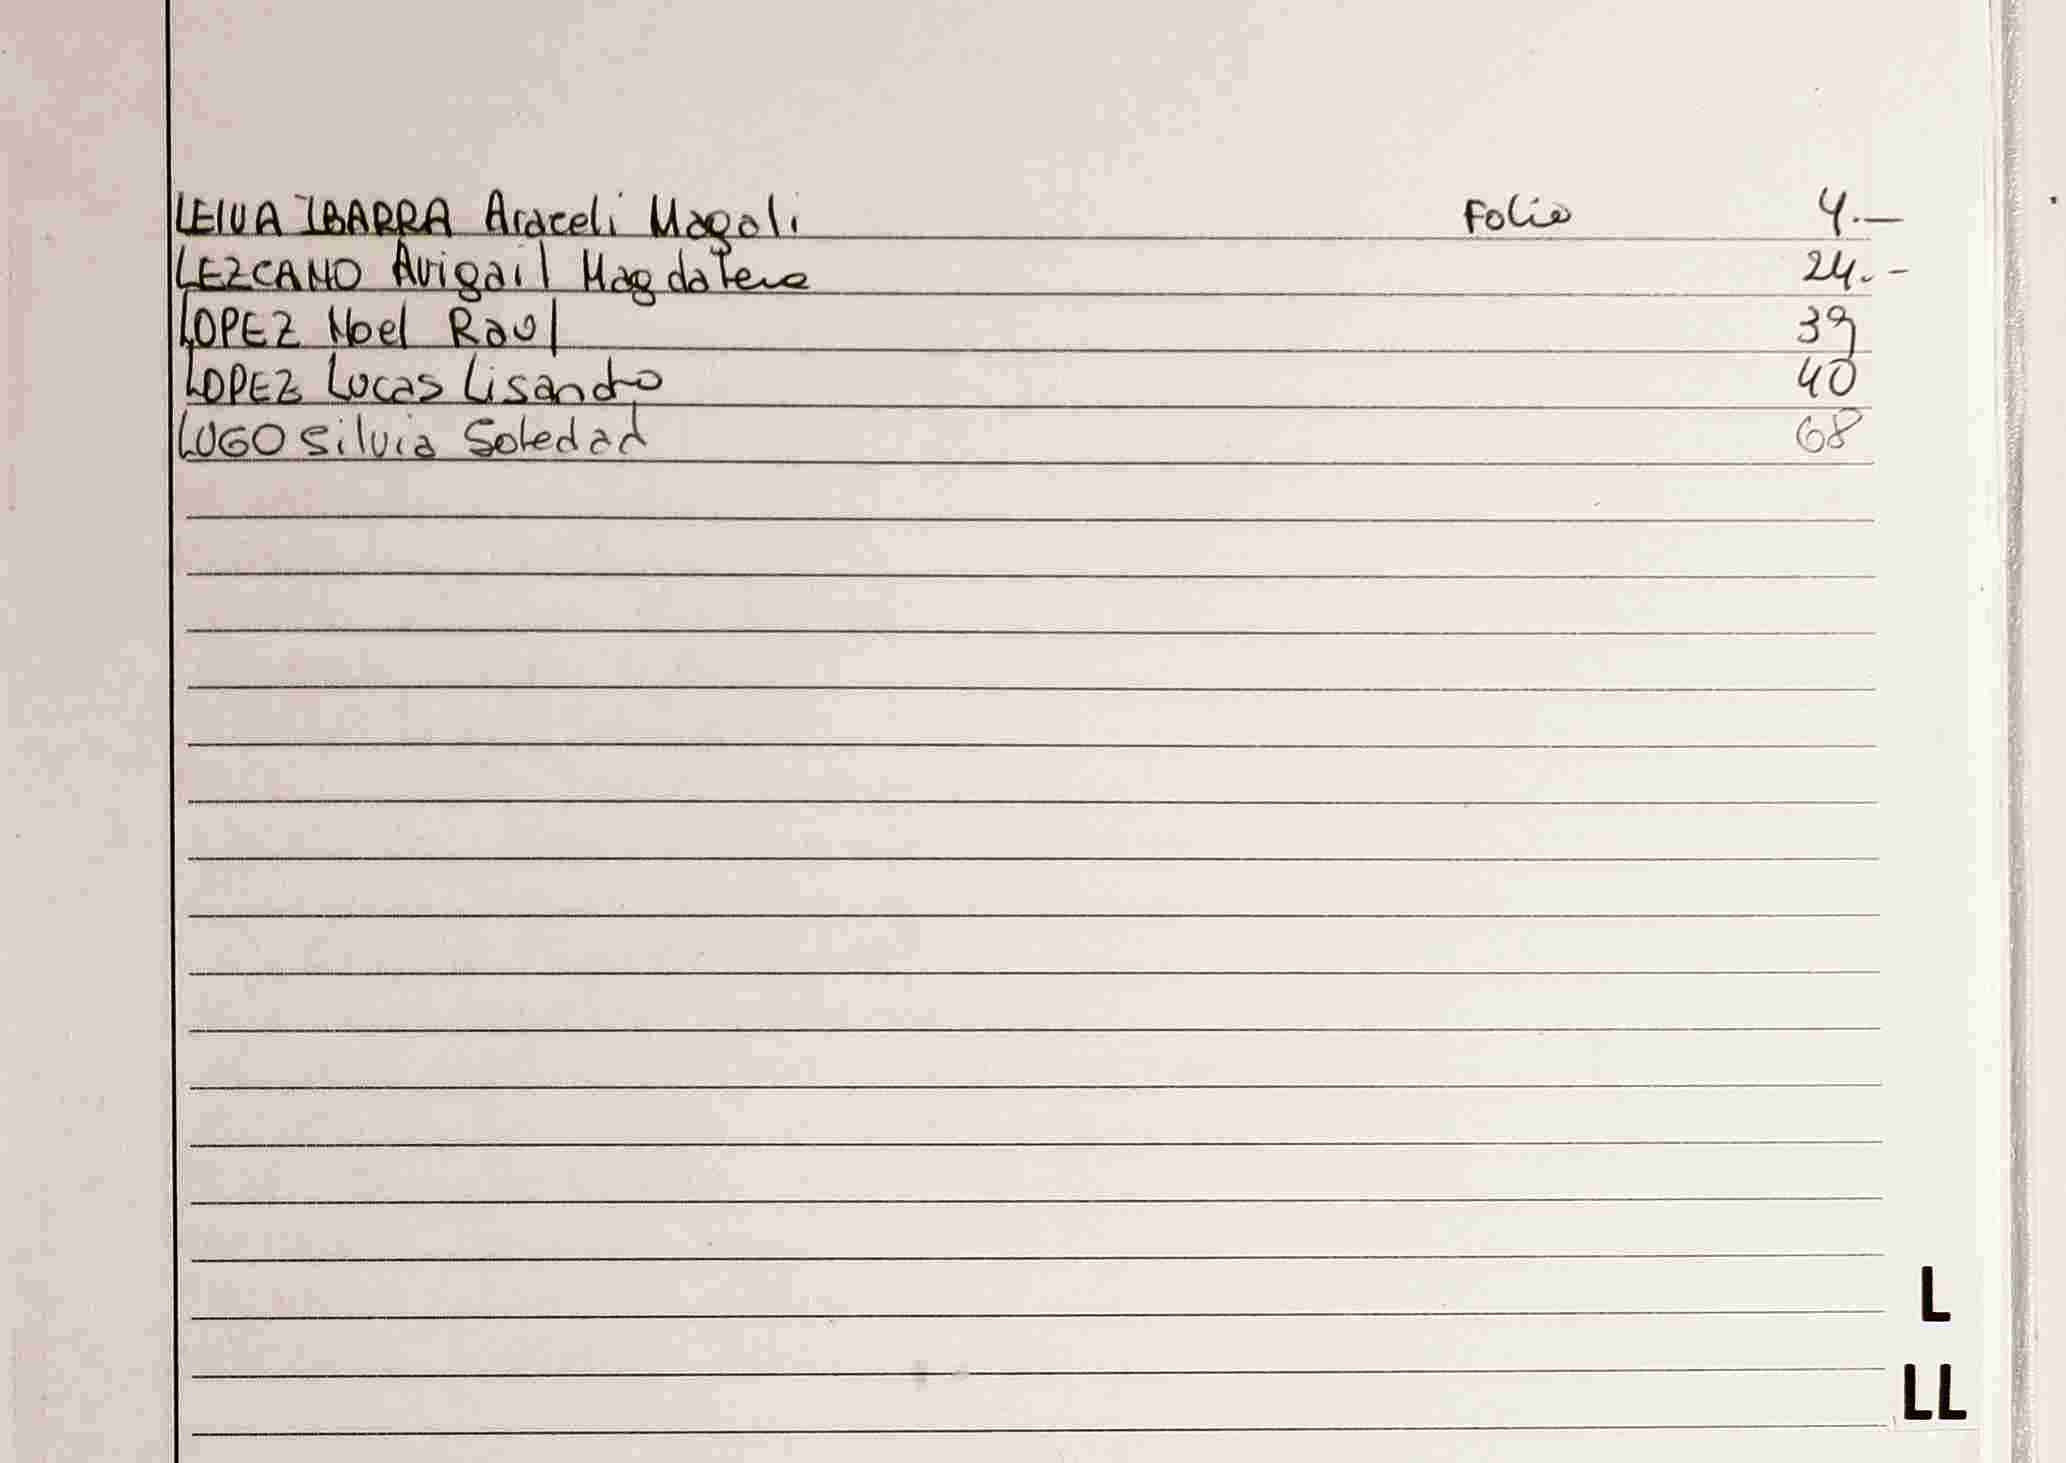 LEIVA IBARRA Araceli Magali Folio 4.—
LEZCANO Avigail Magdalena 24.-
LOPEZ Noel Raul 39
LOPEZ Lucas Lisandro 40
LUGO Silvia Soledad 68
L
LL